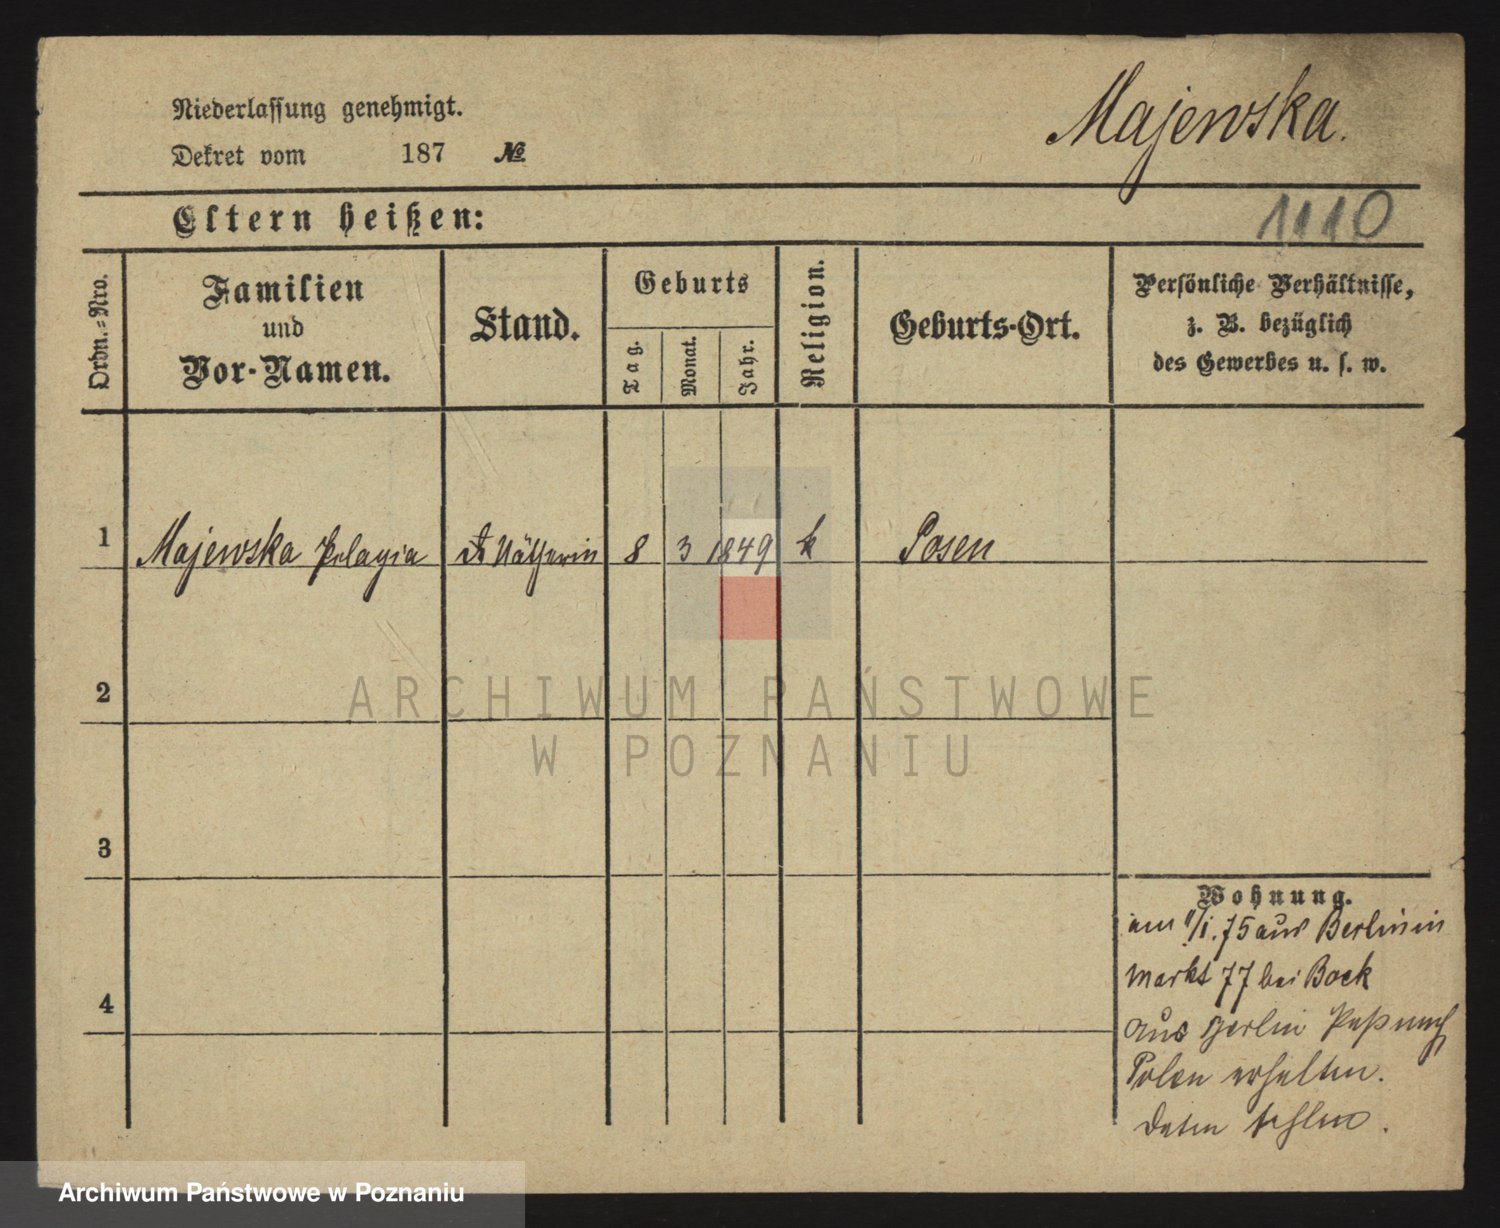 Niederlassung genehmigt.
Dekret vom 187 №
Majewska.
Eltern heißen:
1110
Ordn.=Nro.
Familien
und
Vor-Namen.
Stand.
Geburts
Tag.
Monat.
Jahr.
Religion.
Geburts-Ort.
Persönliche Verhältnisse,
z. B. bezüglich
des Gewerbes u. s. w.
1 Majewska Pelagia Nätherin 8 3 1849 k Posen
2
3
4
Wohnung.
am 11/1.75 aus Berlin in
Markt 77 bei Bock
aus Berlin Paß nach
Polen erhalten.
Daten fehlen.
ARCHIWUM PAŃSTWOWE
W POZNANIU
Archiwum Państwowe w Poznaniu